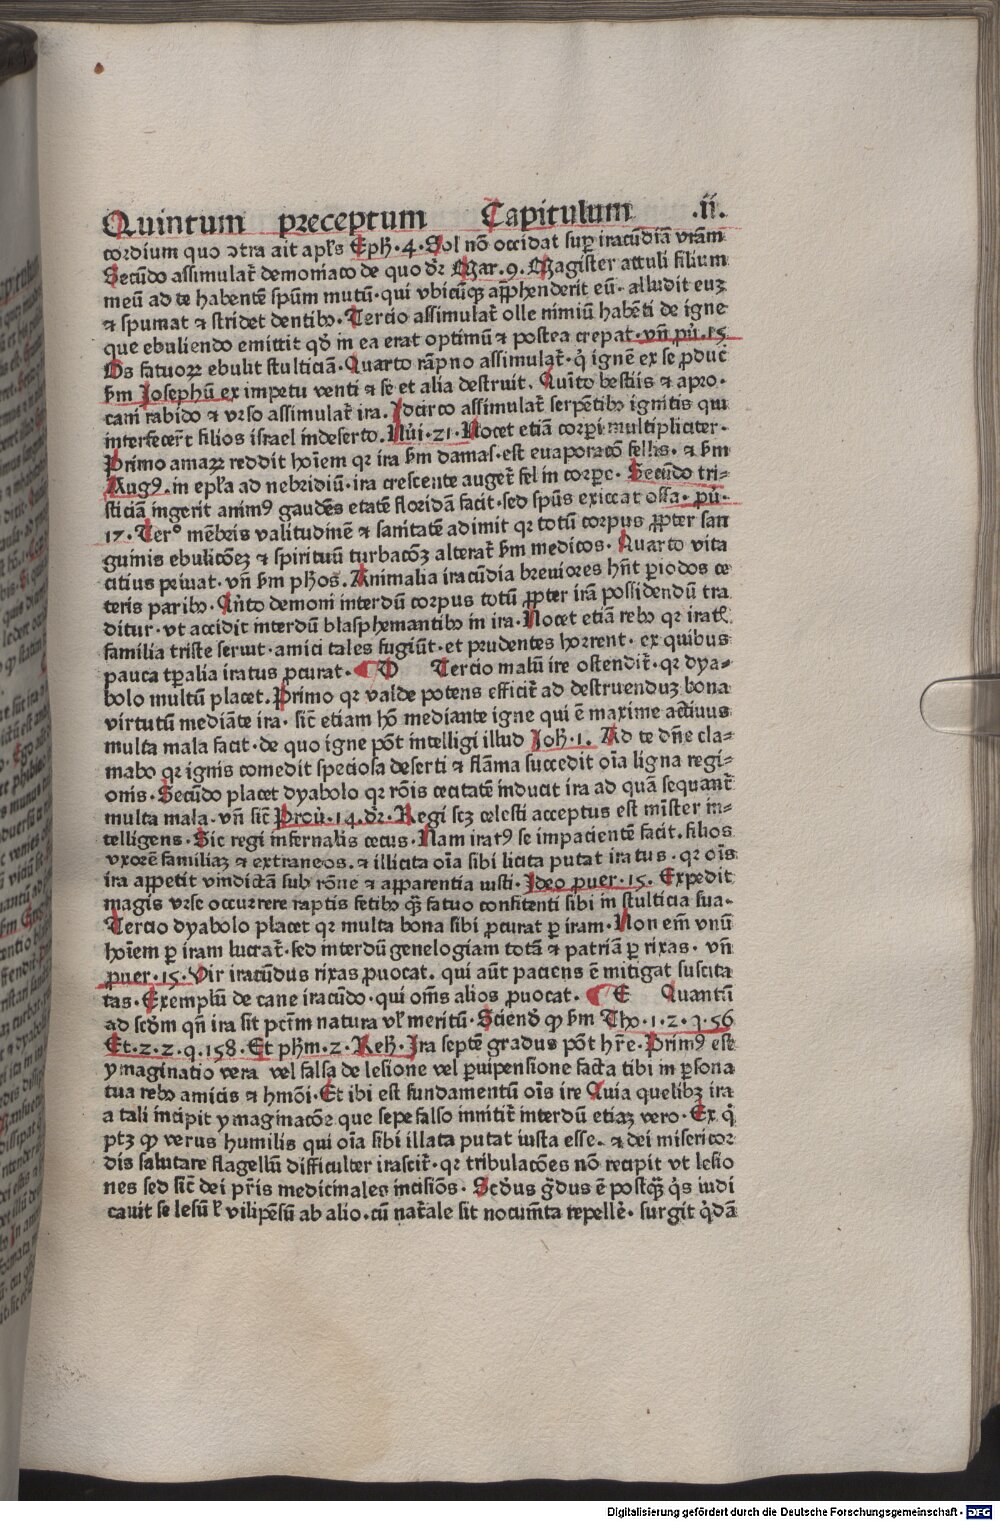 Quintum preceptum Capitulum .ii.
cordium quo ɔtra ait apl̄s Eph̄·4·Sol nō occidat suꝑ iracūdiā vr̄am
Secūdo assimulat᷑ demoniaco de quo dr̄ Mar.9. Magister attuli filium
meū ad te habentē spūm mutū·qui vbicūqꝫ apphenderit eū·alludit euꝫ
⁊ spumat ⁊ stridet dentibꝰ·Tercio assimulat᷑ olle nimiū habēti de igne
que ebuliendo emittit qđ in ea erat optimū ⁊ postea crepat·vn̄ pu̇.15
Os fatuoꝝ ebulit stulticiā·Quarto rāpno assimulat᷑·q̇ ignē ex se ꝓduc̄
ẜm Josephū ex impetu venti ⁊ se et alia destruit. Quīto bestiis ⁊ apro·
cani rabido ⁊ vrso assimulat᷑ ira. Jdcirco assimulat᷑ serpētibꝰ ignitis qui
interfecer̄t filios israel in deserto. Nu̇i·21·Nocet etiā corpꝑi multipliciter·
Primo amaꝝ reddit hoīem qꝛ ira ẜm damas·est euaporacō fellis· ⁊ ẜm
Augꝰ.in epl̄a ad nebridiū·ira crescente auget᷑ fel in corpore· Secūdo tri=
sticiā ingerit animꝰ gaudēs etatē floridā facit·sed spūs exiccat ossa·pu̇·
17·Terº mēbris valitudinē ⁊ sanitatē adimit qꝛ totū corpus ꝓpter san
guinis ebulicōeꝫ ⁊ spirituū turbacōꝫ alterat᷑ ẜm medicos·Quarto vita
citius priuat·vn̄ ẜm ph̄os. Animalia iracūdia breuiores hn̄t ꝑiodos ce
teris paribꝰ. Qn̄to demoni interdū corpus totū ꝓpter irā possidendū tra
ditur·vt accidit interdū blasphemantibꝰ in ira·Nocet etiā rebꝰ qꝛ irati
familia triste seruit·amici tales fugiūt·et prudentes horrent·ex quibus
pauca tꝑalia iratus ꝓcurat·¶ D Tercio malū ire ostendit᷑·qꝛ dya=
bolo multū placet. Primo qꝛ valde potens efficit᷑ ad destruenduꝫ bona
virtutū mediāte ira·sic̄ etiam hō mediante igne qui ē maxime actiuus
multa mala facit·de quo igne pōt intelligi illud Joh̄·1. Ad te dn̄e cla=
mabo qꝛ ignis comedit speciosa deserti ⁊ flāma succedit oīa ligna regi=
onis·Secūdo placet dyabolo qꝛ rōis cecitatē inducit ira ad quā sequant᷑
multa mala·vn̄ sic̄ Prou̇·14.dr̄·Regi scꝫ celesti acceptus est mīster in=
telligens·Sic regi infernalis cecus·Nam iratꝰ se impacientē facit·filios
vxorē familiaꝫ ⁊ extraneos·⁊ illicita oīa sibi licita putat iratus·qꝛ oīs
ira appetit vindictā sub rōne ⁊ apparentia iusti·Jdeo ꝓuer·15. Expedit
magis vrse occurrere raptis fetibꝰ qꝫ̄ fatuo confitenti sibi in stulticia sua·
Tercio dyabolo placet qꝛ multa bona sibi ꝓcurat ꝑ iram·Non em̄ vnū
hoīem ꝑ iram lucrat᷑·sed interdū genelogiam totā ⁊ patriā ꝑ rixas·vn̄
ꝓuer·15·Vir iracūdus rixas ꝓuocat·qui aūt paciens ē mitigat suscita
tas·Exemplū de cane iracūdo·qui om̄s alios ꝓuocat·¶ E Quantū
ad scđm qn̄ ira sit pctm̄ natura vl̄ meritū·Sciend̄ ꝙ ẜm Tho·1·2·q·56
Et·2·2·q.158·Et ph̄m·2·Reh̄·Jra septē gradus pōt hr̄e·Primꝰ est
ymaginatio vera vel falsa de lesione vel ꝑuipensione facta tibi in ꝑsona
tua rebꝰ amicis ⁊ hmōi·Et ibi est fundamentū oīs ire Quia quelibꝫ ira
a tali incipit ymaginacōe que sepe falso innitit᷑ interdū etiaꝫ vero·Ex q̇
ptꝫ ꝙ verus humilis qui oīa sibi illata putat iusta esse·⁊ dei misericor
dis salutare flagellū difficulter irascit᷑·qꝛ tribulacōes nō recipit vt lesio
nes sed sic̄ dei pr̄is medicinales incisiōs·Scđus g̊dus ē postqꝫ̄ q̇s iudi
cauit se lesū ł vilipēsū ab alio·cū nat᷑ale sit nocum̄ta repelle᷑·surgit q̇dā
Digitalisierung gefördert durch die Deutsche Forschungsgemeinschaft - DFG